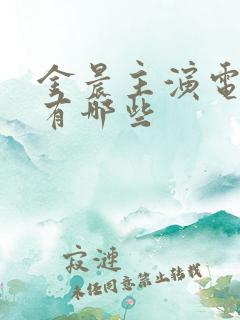 金晨主演电
有哪些
寂涟
未经同意禁止转载